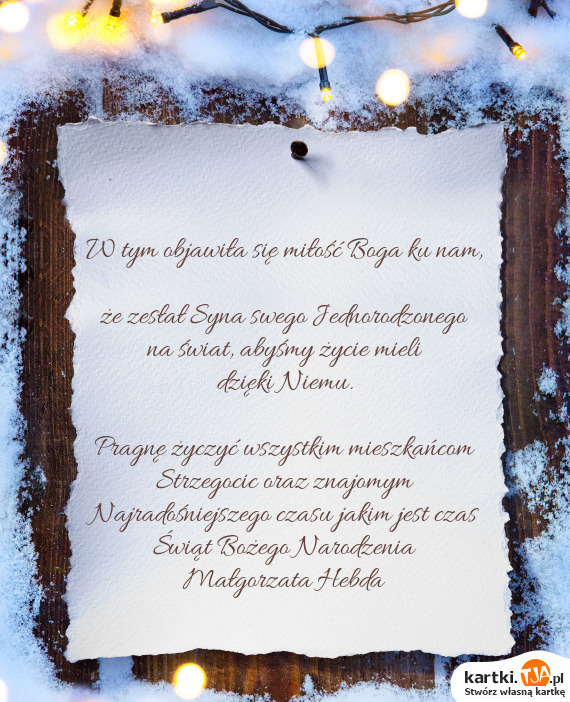 W tym objawiła się miłość Boga ku nam,
że zesłał Syna swego Jednorodzonego
na świat, abyśmy życie mieli
dzięki Niemu.
Pragnę życzyć wszystkim mieszkańcom
Strzegocic oraz znajomym
Najradośniejszego czasu jakim jest czas
Świąt Bożego Narodzenia
Małgorzata Hebda
kartki.TJA.pl
Stwórz własną kartkę